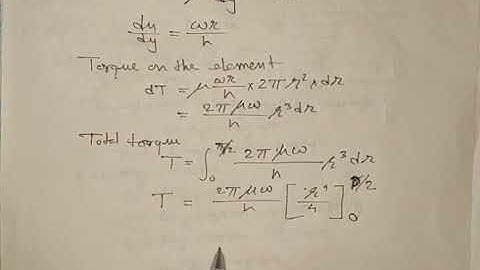 du/dy = ωr/h
Torque on the element
dT = μ ωr/h × 2π r² × dr
= 2πμω/h r³ dr
Total torque
T = ∫₀^D/2 2πμω/h r³ dr
T = 2πμω/h [r⁴/4]₀^D/2